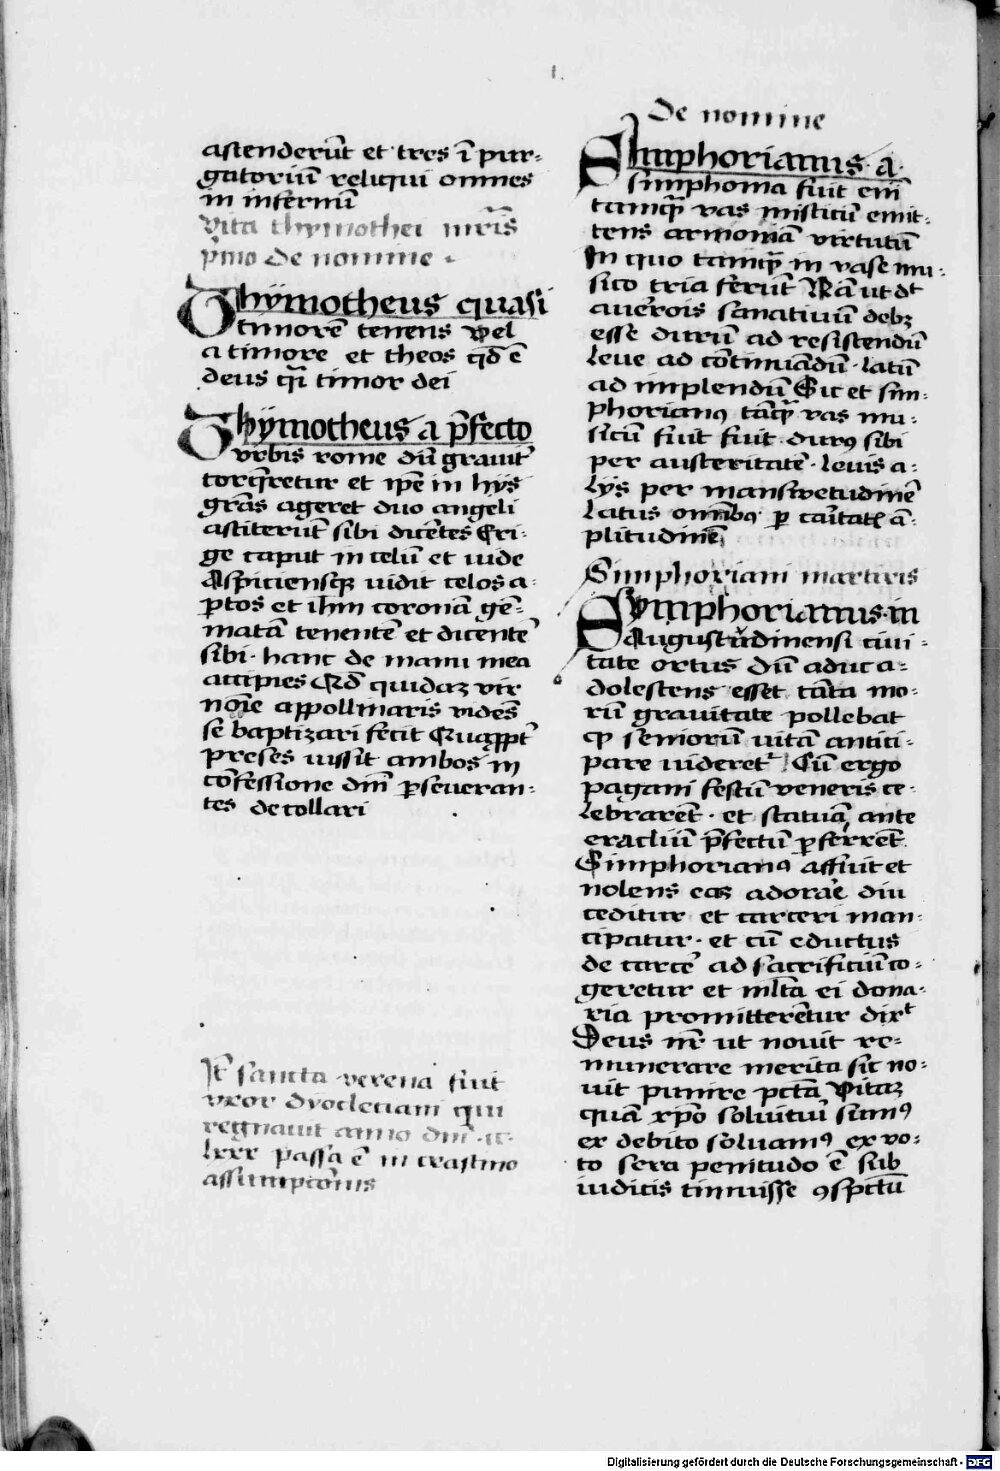 astenderūt et tres ī pur-
gatoriū reliqui omnes
in infernū
Vita thymothei mr̄is
p̄mo de nomine
Thÿmotheus quasi
timorē tenens vel
a timore et theos qd̄ ē
deus qͣi timor dei
Thÿmotheus a p̄fecto
vrbis rome dū grauit᷑
torq̄retur et ip̄e in hÿs
gr̄as ageret duo angeli
astiterūt sibi dicētes Eri-
ge caput in celū et vide
Aspiciensqꝫ vidit celos a-
ꝑtos et ih̄m coronā gē-
matā tenentē et dicentē
sibi· hanc de manu mea
accipies Qd̄ quidaꝫ vir
noīe appollinaris vidēs
se baptizari fecit Quaꝓpt᷑
preses iussit ambos in
cōfessione dn̄i ꝑseueran-
tes decollari
It̄ sancta verena fuit
vxor dyocleciani qui
regnauit anno dn̄i ·cc·
lxxx passa ē in crastino
assumptōnis
de nomine
Simphorianus· a·
simphonia fuit em̄
tamqͣ vas misticū emit-
tens armoniā virtutū
In quo tamqͣ in vase mu-
sico tria ferūt Nā ut dt
auerois sanatiuū debꝫ
esse durū ad resistendū
leue ad cōtinuādū· latū
ad implendū Sic et sim-
phorianꝯ tāqͣ vas mu-
sicū fuit fuit durꝯ sibi
per austeritatē· leuis a-
lÿs per manswetudinē
latus om̄ibꝯ ꝑ caritatē ā-
plitudinē
Simphoriani martiris
Symphorianus· in
Augustudinensi ciui-
tate ortus dū adhuc a-
dolescens esset tāta mo-
rū grauitate pollebat
ꝙ seniorū vitā antici-
pare videret᷑ Cū ergo
pagani festū veneris ce-
lebrarēt· et statuā ante
eracliū p̄fectū p̄ferrēt
Simphorianꝯ affuit et
nolens eaꝫ adorare diu
ceditur et carceri man-
cipatur· et cū eductus
de carcē ad sacrificiū co-
geretur et ml̄ta ei dona-
ria promitterētur dixt
Deus nr̄ ut nouit re-
munerare merita sic no-
uit punire pctā̄ Vitaꝫ
quā xp̄o soluituri sumꝯ
ex debito soluamꝯ ex vo-
to sera penitudo ē sub
iudicis timuisse ꝯspctū
Digitalisierung gefördert durch die Deutsche Forschungsgemeinschaft - DFG